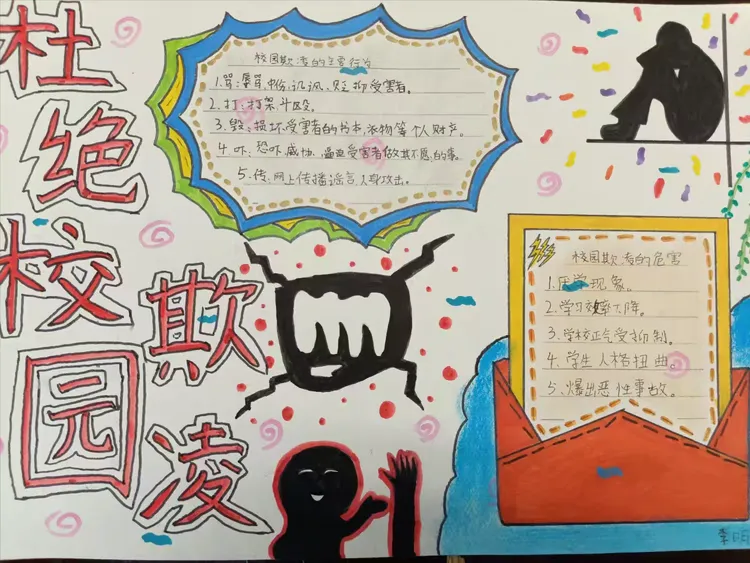 杜绝校园欺凌
校园欺凌的主要行为
1.骂:辱骂、中伤、讥讽、贬抑受害者。
2.打:打架斗殴。
3.毁:损坏受害者的书本、衣物等个人财产。
4.吓:恐吓、威胁、逼迫受害者做其不愿的事。
5.传:网上传播谣言人身攻击。
校园欺凌的危害
1.厌学现象。
2.学习效率下降。
3.学校正气受抑制。
4.学生人格扭曲。
5.爆出恶性事故。
李明